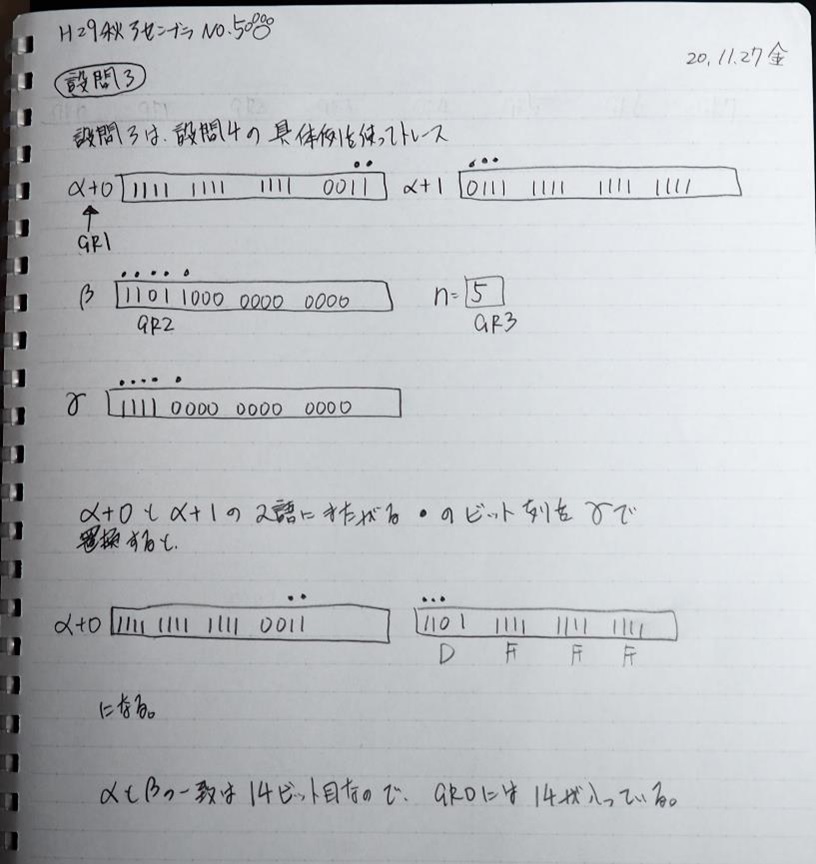 H29秋アセンブラ NO.5
20.11.27 金
設問3
設問3は、設問4の具体例を使ってトレース
α+0 1111 1111 1111 0011 α+1 0111 1111 1111 1111
GR1
β 1101 1000 0000 0000 n=5
GR2 GR3
γ 1111 0000 0000 0000
α+0とα+1の2語にまたがる・のビット列をγで
置換すると、
α+0 1111 1111 1111 0011 1101 1111 1111 1111
D F F F
になる。
αとβの一致は14ビット目なので、GR0には14が入っている。